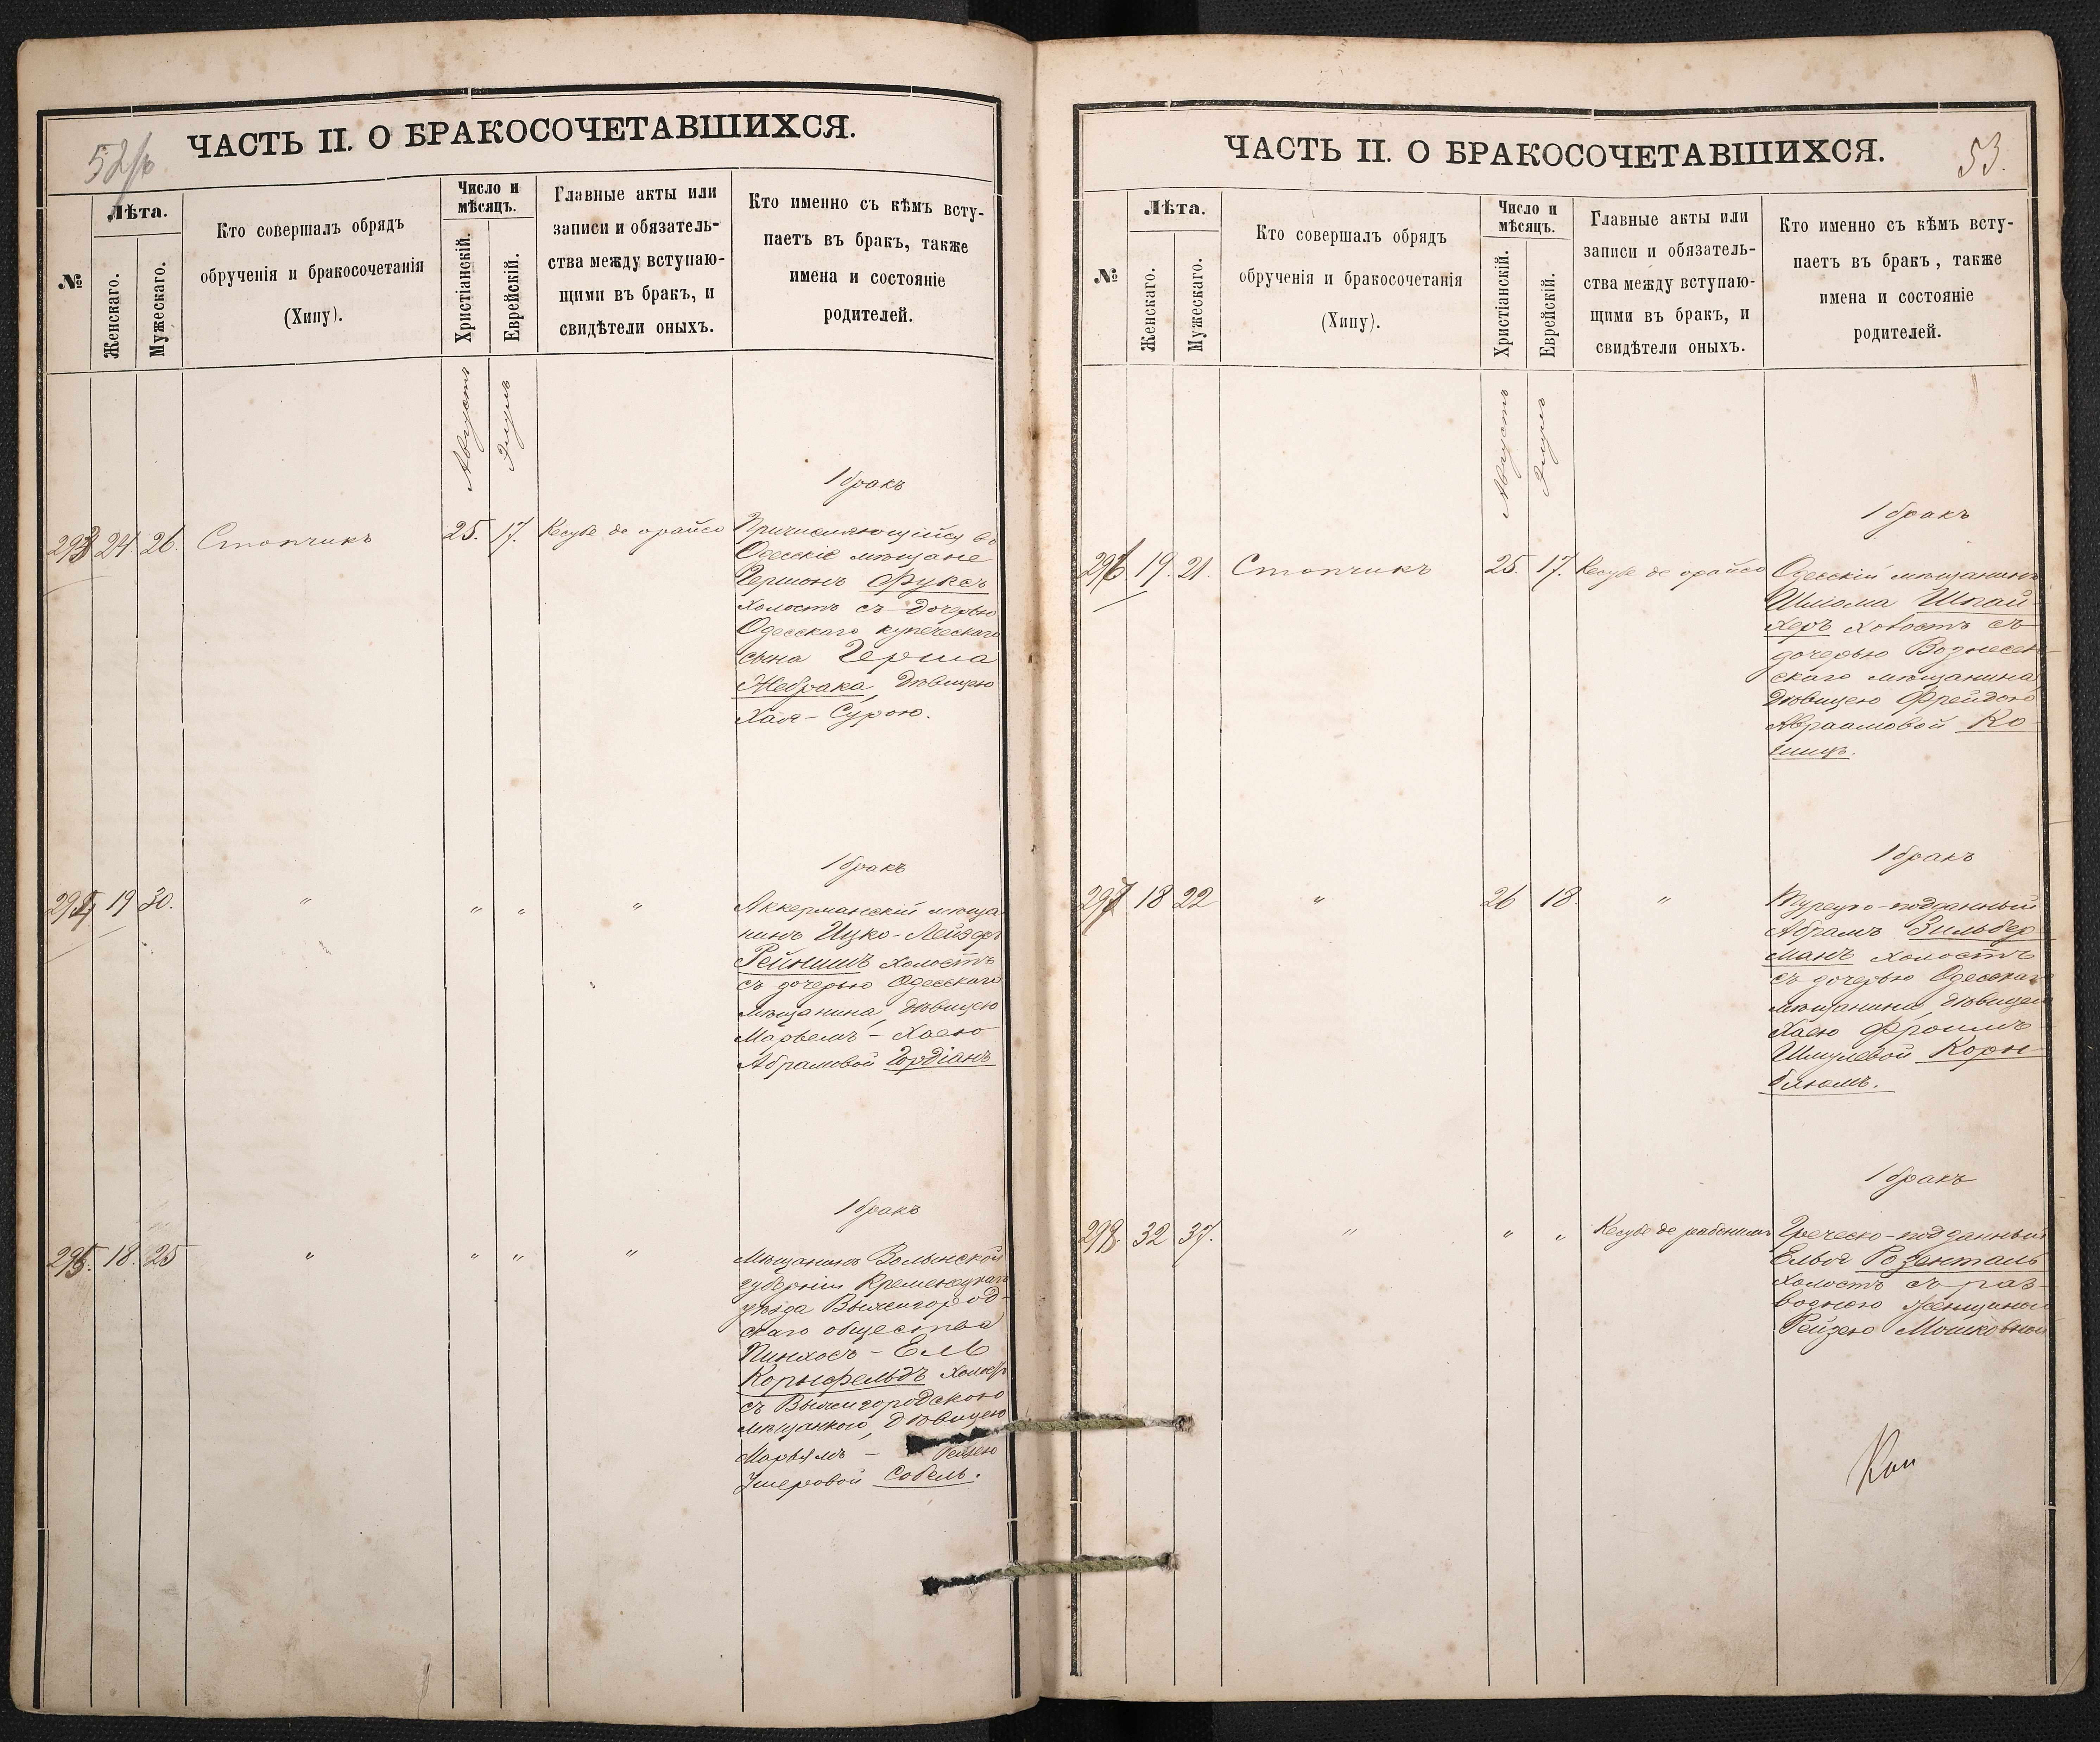 ЧАСТЬ II. О БРАКОСОЧЕТАВШИХСЯ.
№
Лѣта.
Женскаго.
Мужескаго.
Кто совершалъ обрядъ
обрученія и бракосочетанія
(Хипу).
Число и
мѣсяцъ.
Христіанскій.
Еврейскій.
Главные акты или
записи и обязатель-
ства между вступаю-
щими въ бракъ, и
свидѣтели оныхъ.
Кто именно съ кѣмъ всту-
паетъ въ бракъ, также
имена и состояніе
родителей.
Августъ
Элулъ
1 бракъ
293 24 26. Стопчикъ 25. 17. Кесубе де орайсо
Причисляющійся въ
Одесскіе мѣщане
Гершонъ Фуксъ
холостъ съ дочерью
Одесскаго купеческаго
сына Герша
Жебрака, дѣвицею
Хая-Сурою.
1 бракъ
294 19 30. " " " "
Аккерманскій мѣща-
нинъ Ицко-Лейзеръ
Рейнишъ холостъ
съ дочерью Одесскаго
мѣщанина, дѣвицею
Марьемъ-Хаею
Абрамовой Гордіанъ
1 бракъ
295. 18. 25 " " " "
Мѣщанинъ Волынской
губерніи Кременецкаго
уѣзда Вышгород-
скаго общества
Пинхосъ-Ель
Корнфельдъ холостъ
съ Вышгородскою
мѣщанкою, дѣвицею
Марьямъ - Рейзею
Ушеровой Собель.
ЧАСТЬ II. О БРАКОСОЧЕТАВШИХСЯ.
53.
№
Лѣта.
Женскаго.
Мужескаго.
Кто совершалъ обрядъ
обрученія и бракосочетанія
(Хипу).
Число и
мѣсяцъ.
Христіанскій.
Еврейскій.
Главные акты или
записи и обязатель-
ства между вступаю-
щими въ бракъ, и
свидѣтели оныхъ.
Кто именно съ кѣмъ всту-
паетъ въ бракъ, также
имена и состояніе
родителей.
Августъ
Элулъ
1 бракъ
296. 19. 21. Стопчикъ 25. 17. Кесубе де орайсо
Одесскій мѣщанинъ
Шлiома Шпай-
херъ холостъ съ
дочерью Вознесен-
скаго мѣщанина,
дѣвицею Фрейдою
Авраамовой Ко-
1 бракъ
297 18 22 " 26 18 "
Турецко-подданный
Абрамъ Зильбер-
манъ холостъ
съ дочерью Одесскаго
мѣщанина, дѣвицею
Хаею Фроимъ-
Шмулевой Корн-
блюмъ.
1 бракъ
298. 32 37. " " " Кесубе де рабонимъ
Греческо-подданный
Ельо Розенталь
холостъ съ раз-
водною женщиною
Рейзею Мошковной